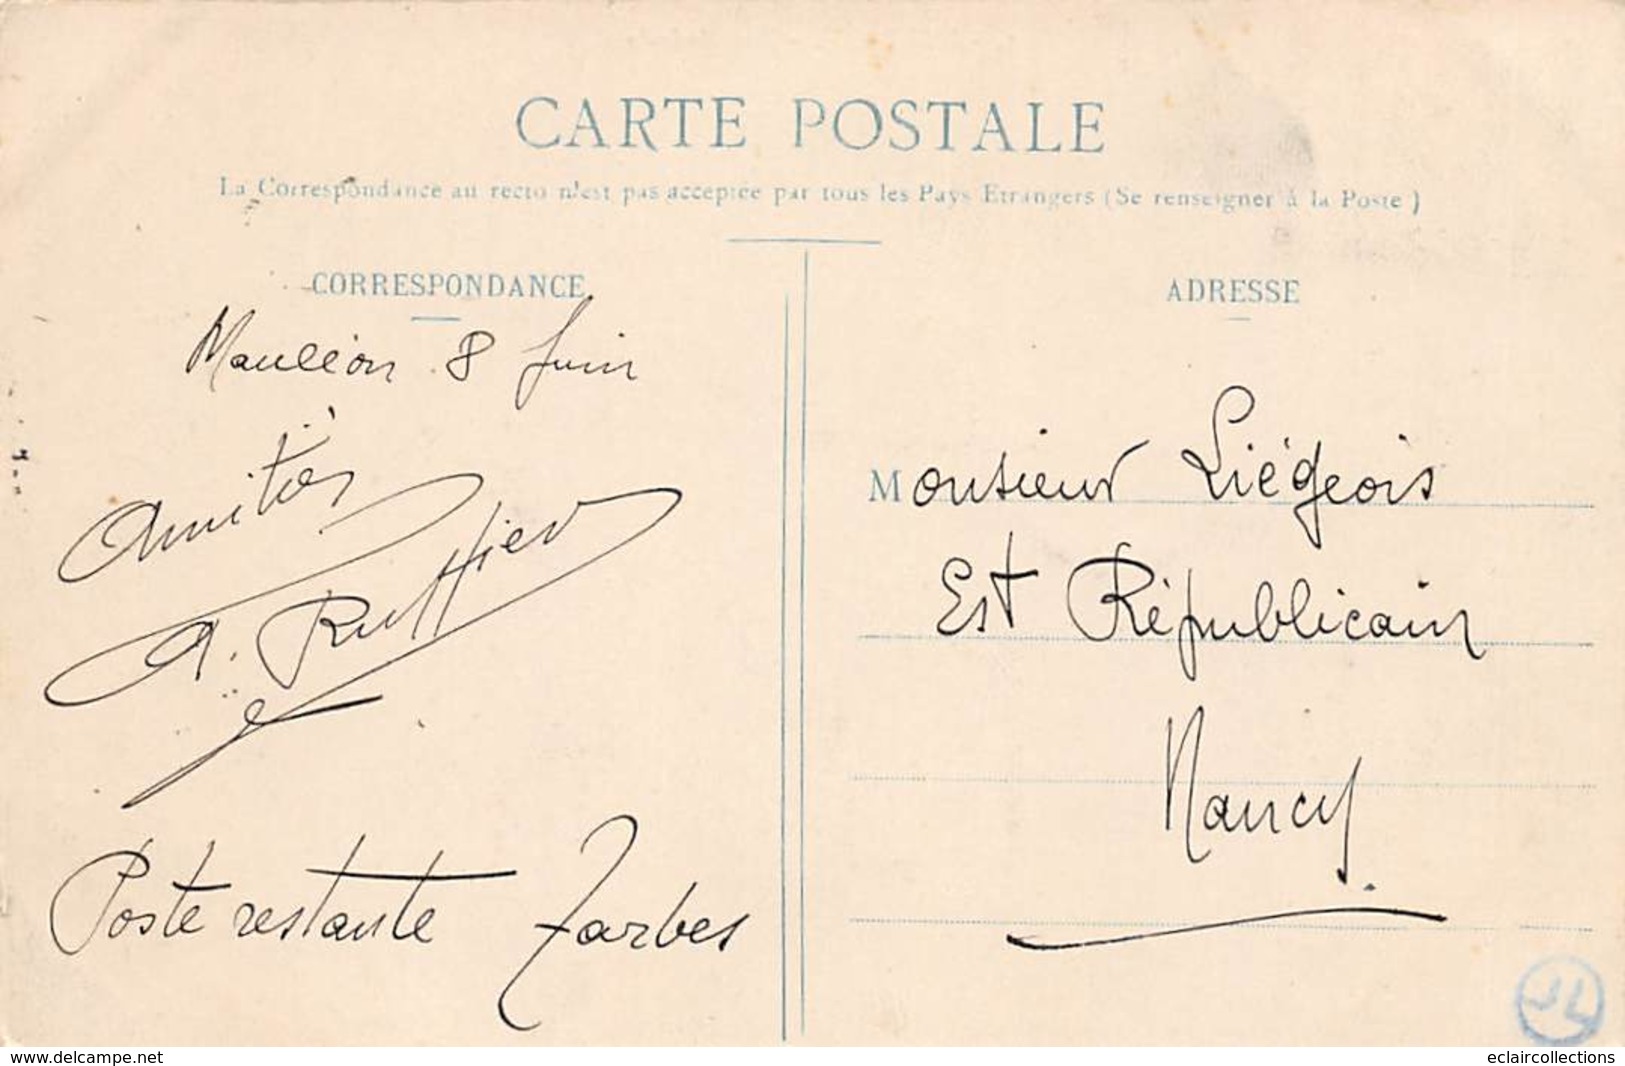 CARTE POSTALE
La Correspondance au recto n'est pas acceptée par tous les Pays Etrangers (Se renseigner à la Poste)
CORRESPONDANCE
Mauléon 8 Juin
Amitiés
A. Ruffier
Poste restante Tarbes
ADRESSE
Monsieur Liégeois
Est Républicain
Nancy.
JL
www.delcampe.net
eclaircollections